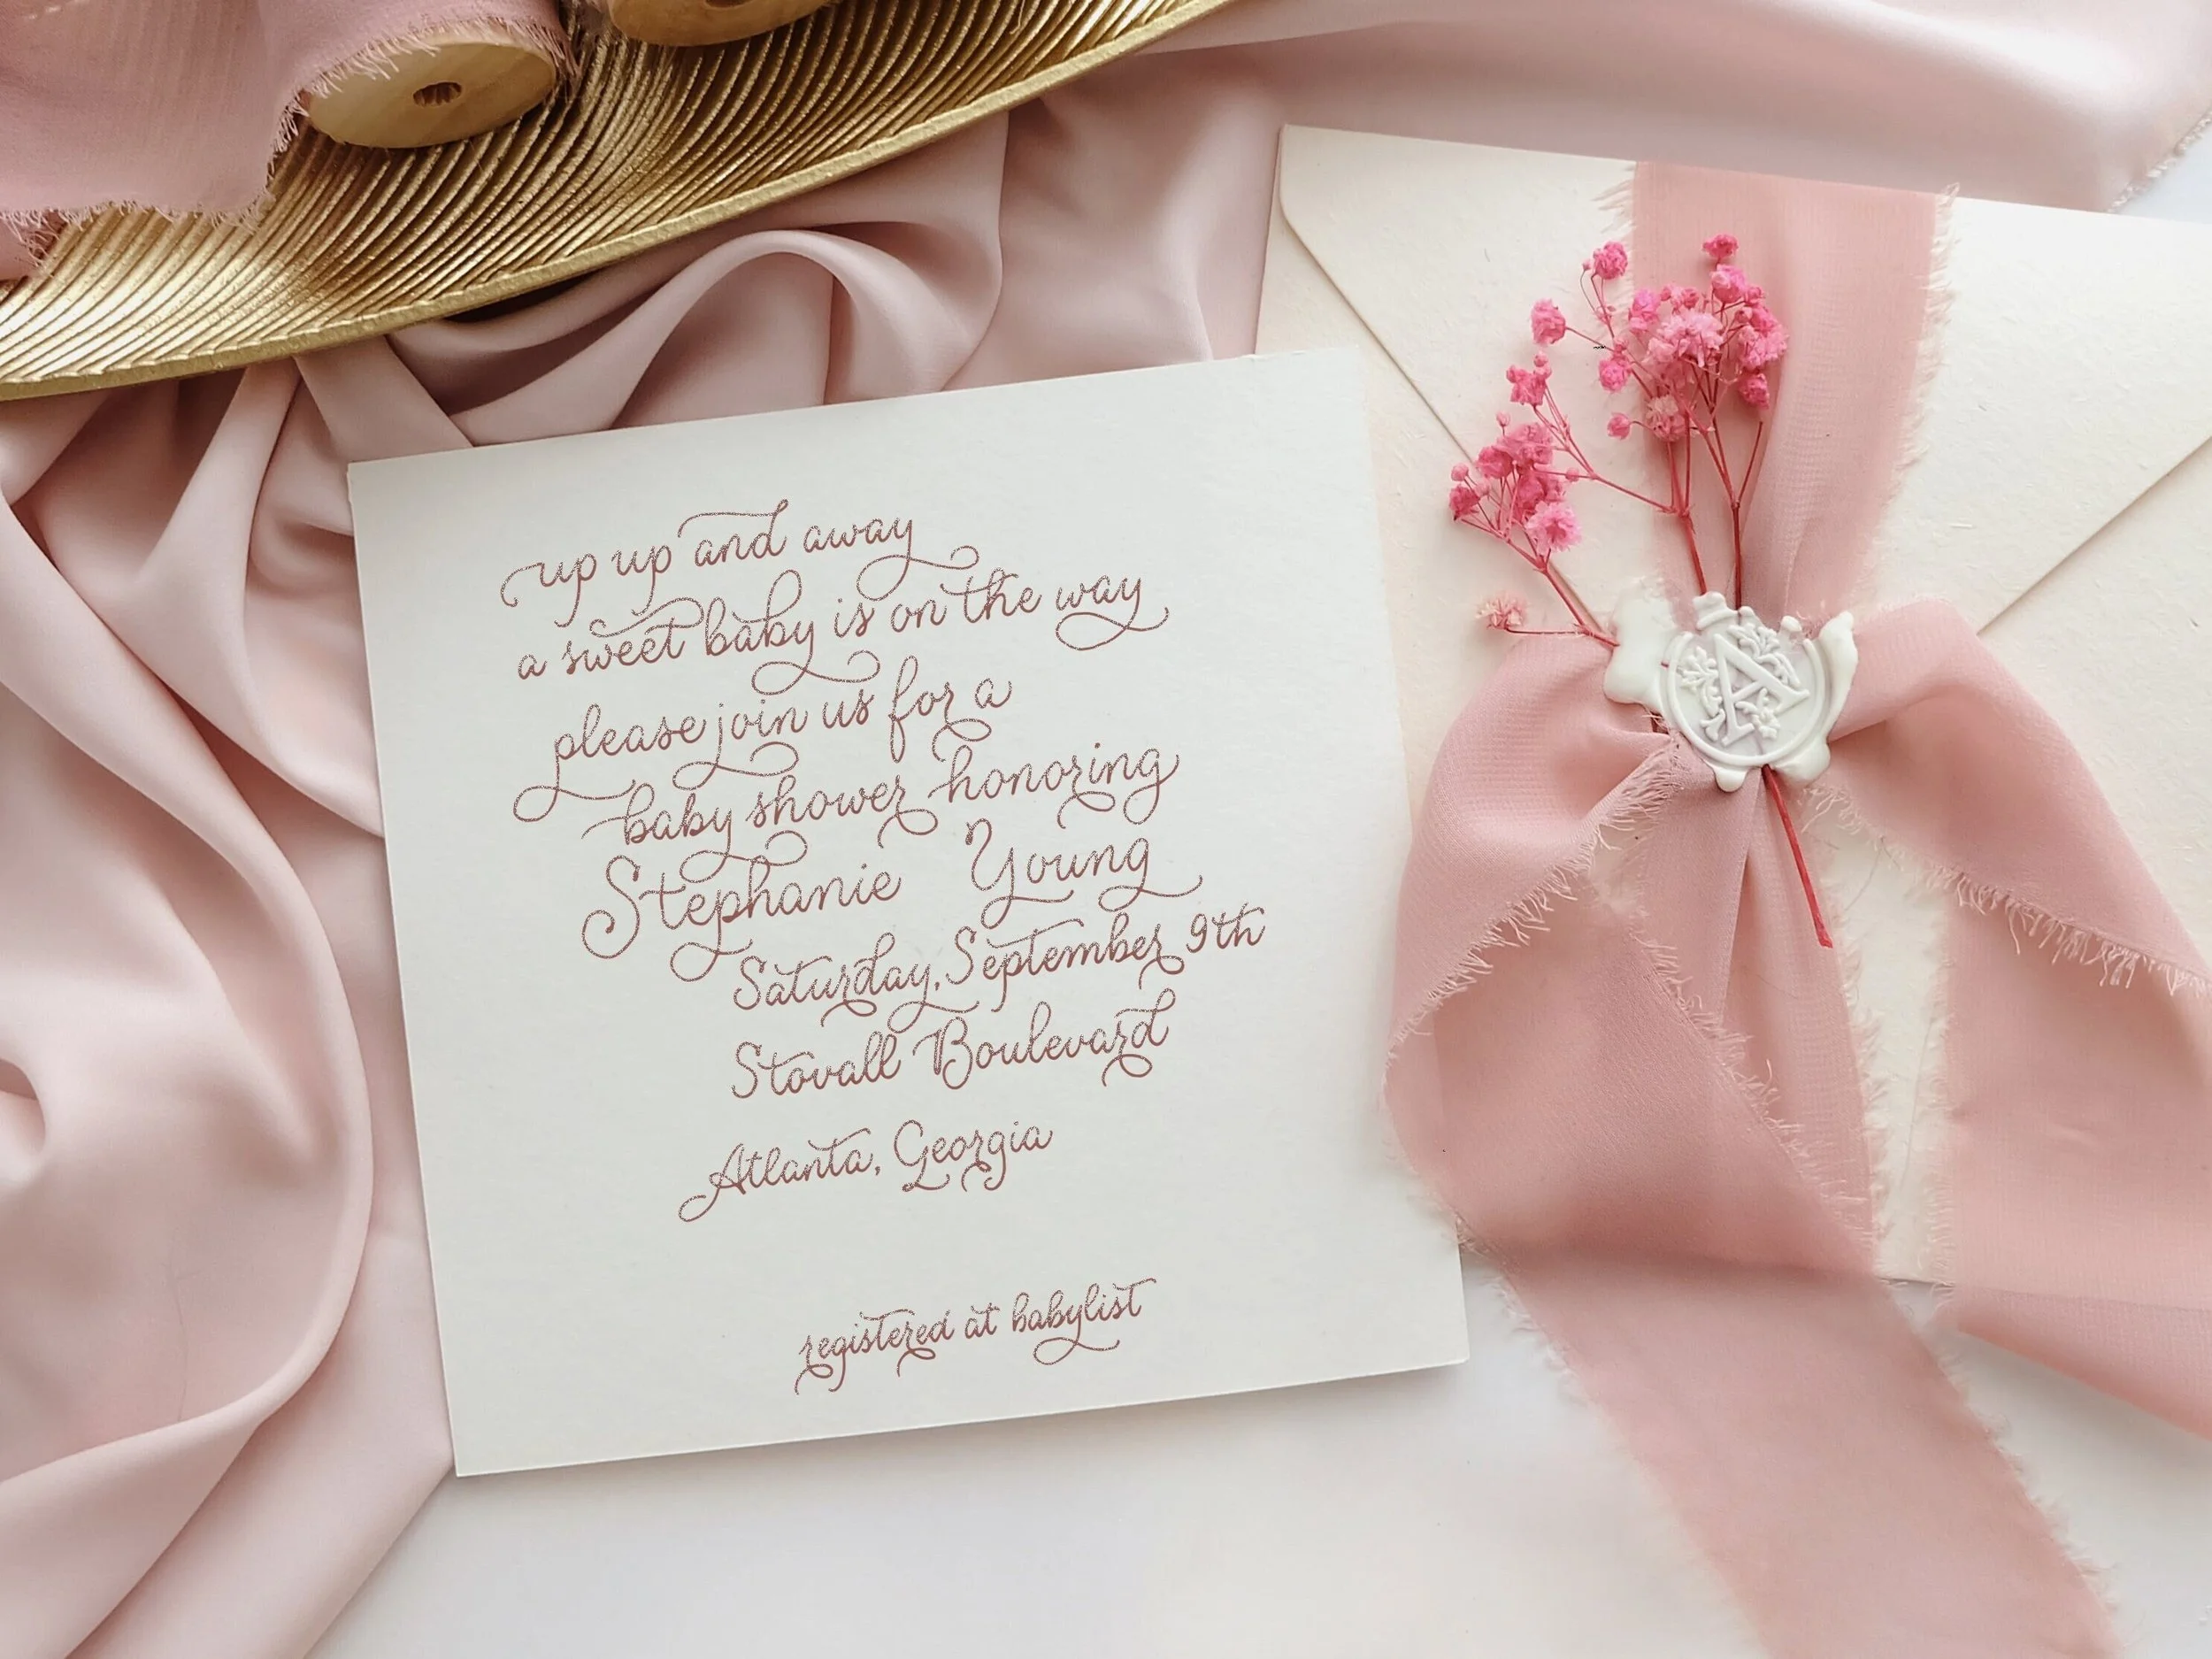 up up and away
a sweet baby is on the way
please join us for a
baby shower honoring
Stephanie Young
Saturday, September 9th
Stovall Boulevard
Atlanta, Georgia
registered at babylist
A